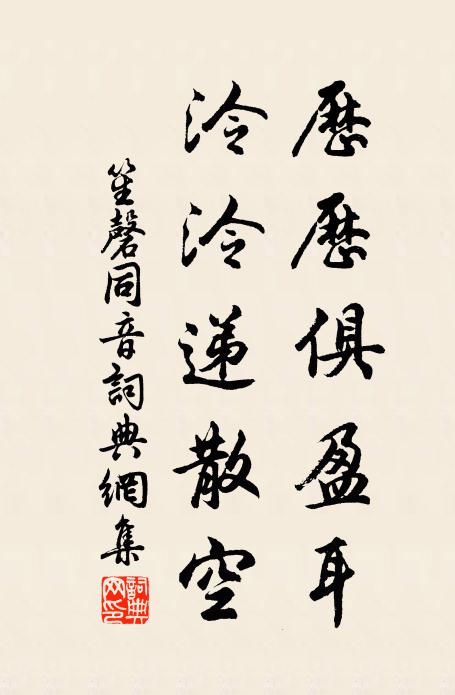 歷歷俱盈耳
泠泠遞散空
笙磬同音詞典網集
詞典網印